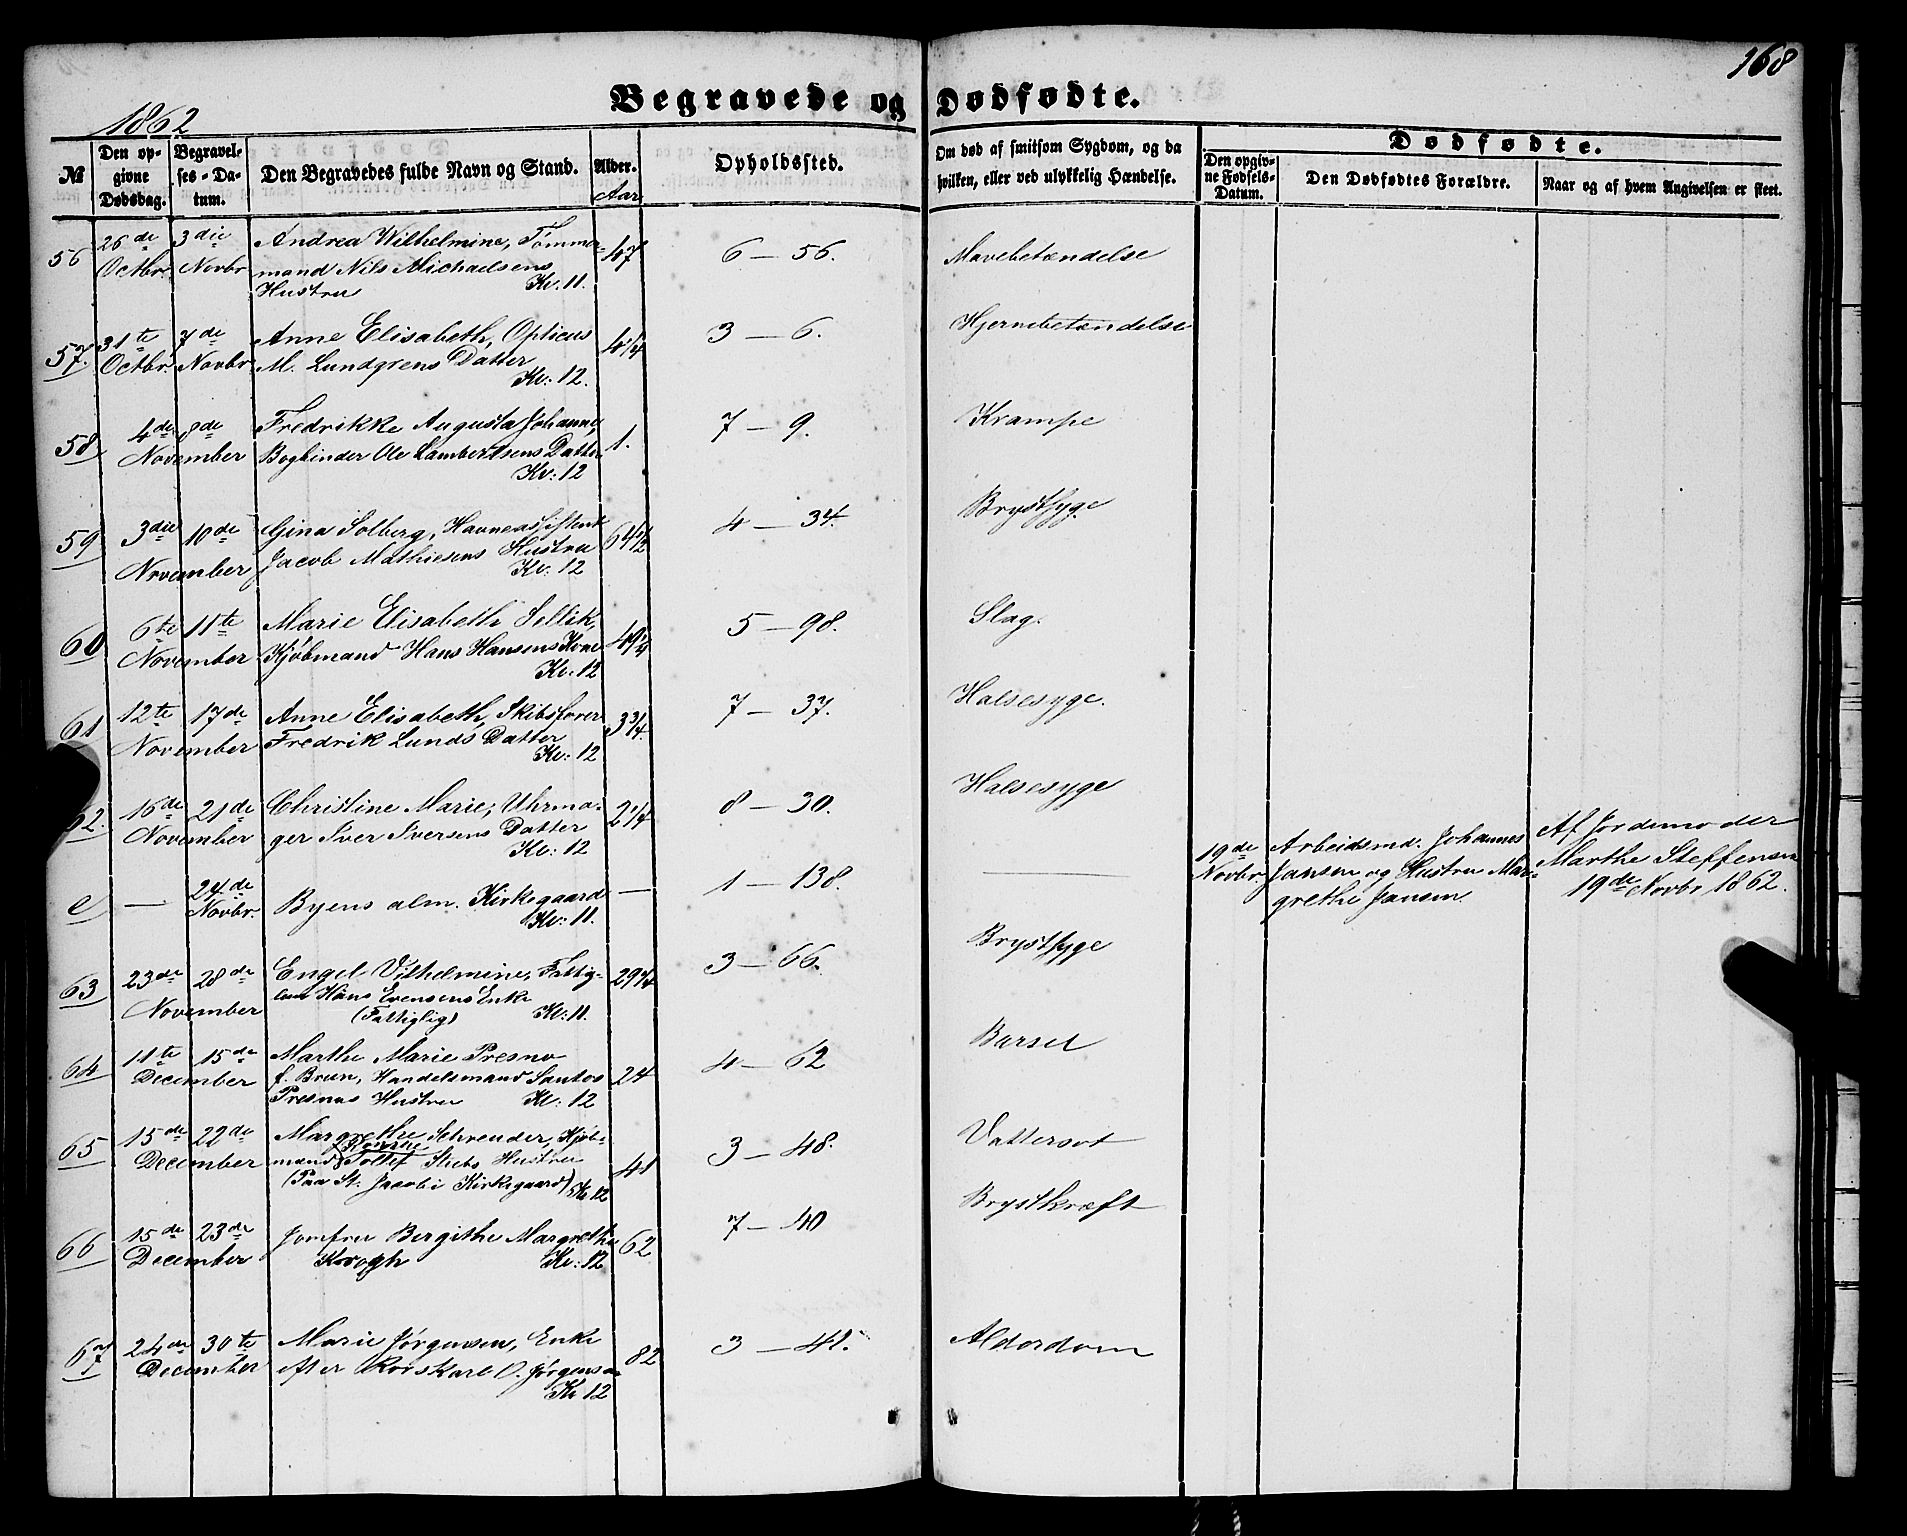 168
Begravede og Dødfødte.
1862
№
Den op-
givne
Dødsdag.
Begravel-
ses-Da-
tum.
Den Begravedes fulde Navn og Stand.
Alder.
Aar
Opholdssted.
Om død af smitsom Sygdom, og da
hvilken, eller ved ulykkelig Hændelse.
Dødfødte.
Den opgiv-
ne Fødsels-
Datum.
Den Dødfødtes Forældre.
Naar og af hvem Angivelsen er skeet.
56 26de Octbr. 3die Novbr Andrea Wilhelmine, Tømmer- 47 6 – 56. Mavebetændelse
mand Nils Michaelsens
Hustru Kv. 11.
57. 31te Octbr. 7de Novbr Anne Elisabeth, Opticus 4 1/4 3 – 6. Hjernebetændelse
M. Lundgrens Datter
Kv: 12.
58 4de 8de Fredrikke Augusta Johanne, 1. 7 – 9. Krampe
November Bogbinder Ole Lambertsens Datter
Kv: 12
59 3die 10de Gina Solberg, Havneassistent 64 1/2 4 – 34. Brystsyge
November Jacob Mathiesens Hustru
Kv: 12
60 6te 11te Marie Elisabeth Sellik, 49 1/4 5 – 98. Slag.
November Kjøbmand Hans Hansens Kone
Kv: 12
61 12te 17de Anne Elisabeth, Skibsfører 3 3/4. 7 – 37. Halsesyge.
November Fredrik Lunds Datter
Kv: 12
62. 16de 21de Christine Marie, Uhrma- 2 1/4 8 – 30. Halsesyge
November ger Iver Iversens Datter
Kv: 12
e — 24de Novbr. Byens alm. Kirkegaard — 1 – 138. —
Kv: 11.
19de Novbr.
Arbeidsmd. Johannes
Jansen og Hustru Mar-
grethe Jansen
Af Jordemoder
Marthe Steffensen
19de Novbr 1862.
63 23de 28de Engel Vilhelmine, Fattig- 29 3/4 3 – 66. Brystsyge
lem Hans Evensens Enke
November (Fattiglig) Kv: 11.
64 11te 15de Marthe Marie Presno 24 4 – 62 Barsel
December f. Brun, Handelsmand Santos
Presnos Hustru Kv: 12
65 15de 22de Margrethe Schrøuder, Kjøb- 41 3 – 48. Vattersot
December mand Tollef Stubs Hustru
(Paa St. Jacobi Kirkegaard) Kv 12
66 15de 23de Jomfru Bergithe Margrethe 62 7 – 40 Brystkræft
December Krogh Kv: 12
67 24de 30te Marie Jørgensen, Enke 82 3 – 41. Alderdom
December efter Rorskarl O. Jørgensen
Kv 12